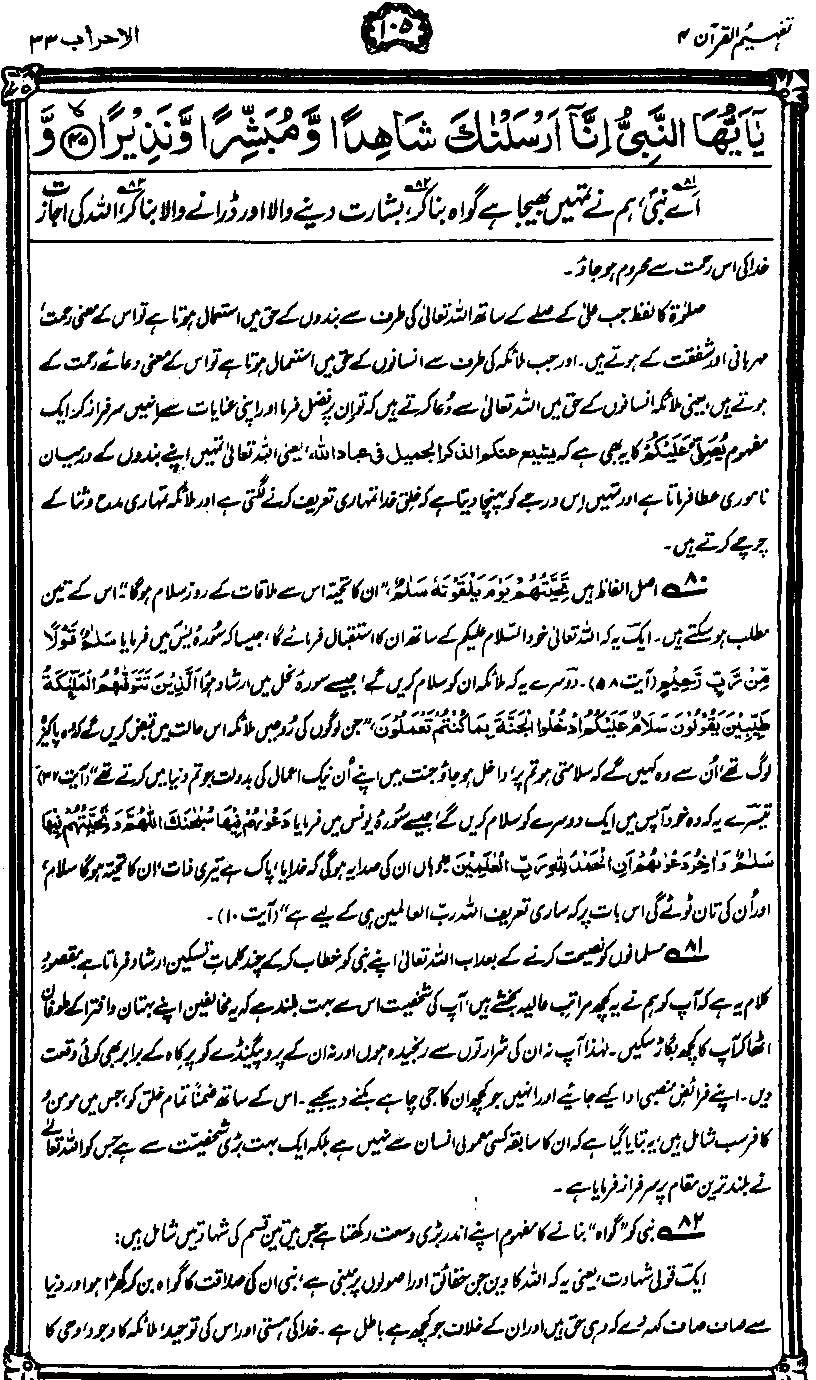 تفہیم القرآن ۴
۱۰۵
الاحزاب ۳۳
يٰۤاَيُّهَا النَّبِيُّ اِنَّاۤ اَرْسَلْنٰكَ شَاهِدًا وَّمُبَشِّرًا وَّنَذِيْرًا ﴿۴۵﴾ وَّ
اَے نبیؐ،۸۱ ہم نے تمہیں بھیجا ہے گواہ بنا کر،۸۲ بشارت دینے والا اور ڈرانے والا بنا کر،۸۳ اللہ کی اجازت
خدا کی اس رحمت سے محروم ہو جاؤ۔
صلوٰۃ کا لفظ جب علیٰ کے صلے کے ساتھ اللہ تعالیٰ کی طرف سے بندوں کے حق میں استعمال ہوتا ہے تو اس کے معنی رحمت،
مہربانی اور شفقت کے ہوتے ہیں۔ اور جب ملائکہ کی طرف سے انسانوں کے حق میں استعمال ہوتا ہے تو اس کے معنی دعائے رحمت کے
ہوتے ہیں، یعنی ملائکہ انسانوں کے حق میں اللہ تعالیٰ سے دُعا کرتے ہیں کہ تو ان پر فضل فرما اور اپنی عنایات سے انہیں سرفراز کر۔ ایک
مفہوم يُصَلِّيْ عَلَيْكُمْ کا یہ بھی ہے کہ یشیع عنکم الذکر الجمیل فی عباد اللہ، یعنی اللہ تعالیٰ تمہیں اپنے بندوں کے درمیان
ناموری عطا فرماتا ہے اور تمہیں اس درجے کو پہنچا دیتا ہے کہ خلقِ خدا تمہاری تعریف کرنے لگتی ہے اور ملائکہ تمہاری مدح و ثنا کے
چرچے کرتے ہیں۔
۸۰ اصل الفاظ ہیں تَحِيَّتُهُمْ يَوْمَ يَلْقَوْنَهٗ سَلٰمٌ، ”ان کا تحیّہ اس سے ملاقات کے روز سلام ہوگا“۔ اس کے تین
مطلب ہو سکتے ہیں۔ ایک یہ کہ اللہ تعالیٰ خود السّلام علیکم کے ساتھ ان کا استقبال فرمائے گا، جیسا کہ سُورۂ یٰسٓ میں فرمایا سَلٰمٌ قَوْلًا
مِّنْ رَّبٍّ رَّحِيْمٍ (آیت ۵۸)۔ دوسرے یہ کہ ملائکہ ان کو سلام کریں گے، جیسے سورۂ نحل میں ارشاد ہوا اَلَّذِيْنَ تَتَوَفّٰىهُمُ الْمَلٰٓئِكَةُ
طَيِّبِيْنَ يَقُوْلُوْنَ سَلَامٌ عَلَيْكُمُ ادْخُلُوا الْجَنَّةَ بِمَا كُنْتُمْ تَعْمَلُوْنَ، ”جن لوگوں کی رُوحیں ملائکہ اس حالت میں قبض کریں گے کہ وہ پاکیزہ
لوگ تھے، اُن سے وہ کہیں گے کہ سلامتی ہو تم پر، داخل ہو جاؤ جنت میں اپنے اُن نیک اعمال کی بدولت جو تم دنیا میں کرتے تھے“ (آیت ۳۲)
تیسرے یہ کہ وہ خود آپس میں ایک دوسرے کو سلام کریں گے، جیسے سُورۂ یونس میں فرمایا دَعْوٰىهُمْ فِيْهَا سُبْحٰنَكَ اللّٰهُمَّ وَتَحِيَّتُهُمْ فِيْهَا
سَلٰمٌ وَاٰخِرُ دَعْوٰىهُمْ اَنِ الْحَمْدُ لِلّٰهِ رَبِّ الْعٰلَمِيْنَ ”وہاں ان کی صدا یہ ہوگی کہ خدایا، پاک ہے تیری ذات، ان کا تحیّہ ہوگا سلام،
اور اُن کی تان ٹوٹے گی اس بات پر کہ ساری تعریف اللہ ربّ العالمین ہی کے لیے ہے“ (آیت ۱۰)۔
۸۱ مسلمانوں کو نصیحت کرنے کے بعد اب اللہ تعالیٰ اپنے نبی کو خطاب کر کے چند کلماتِ تسکین ارشاد فرماتا ہے۔ مقصودِ
کلام یہ ہے کہ آپ کو ہم نے یہ کچھ مراتبِ عالیہ بخشے ہیں، آپ کی شخصیت اس سے بہت بلند ہے کہ یہ مخالفین اپنے بہتان و افترا کے طوفان
اٹھا کر آپ کا کچھ بگاڑ سکیں۔ لہٰذا آپ نہ ان کی شرارتوں سے رنجیدہ ہوں اور نہ ان کے پروپیگنڈے کو پرِ کاہ کے برابر بھی کوئی وقعت
دیں۔ اپنے فرائضِ منصبی ادا کیے جائیے اور انہیں جو کچھ ان کا جی چاہے بکنے دیجیے۔ اس کے ساتھ ضمناً تمام خلق کو، جس میں مومن و
کافر سب شامل ہیں، یہ بتایا گیا ہے کہ ان کا سابقہ کسی معمولی انسان سے نہیں ہے بلکہ ایک بہت بڑی شخصیّت سے ہے جس کو اللہ تعالیٰ
نے بلند ترین مقام پر سرفراز فرمایا ہے۔
۸۲ نبی کو ”گواہ“ بنانے کا مفہوم اپنے اندر بڑی وسعت رکھتا ہے جس میں تین قسم کی شہادتیں شامل ہیں:
ایک قولی شہادت، یعنی یہ کہ اللہ کا دین جن حقائق اور اصولوں پر مبنی ہے، نبی ان کی صداقت کا گواہ بن کر کھڑا ہو اور دنیا
سے صاف صاف کہہ دے کہ وہی حق ہیں اور ان کے خلاف جو کچھ ہے باطل ہے۔ خدا کی ہستی اور اس کی توحید، ملائکہ کا وجود، وحی کا